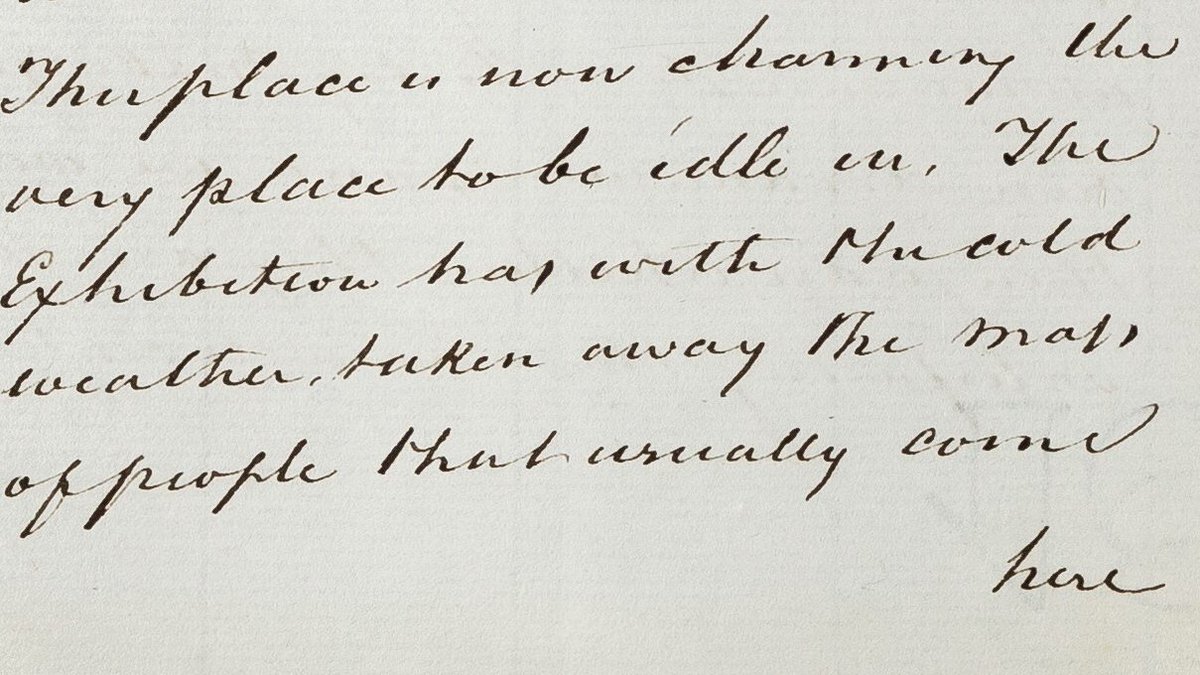 This place is now charming the
very place to be idle in. The
Exhibition has with the cold
weather, taken away the mass
of people that usually come
here